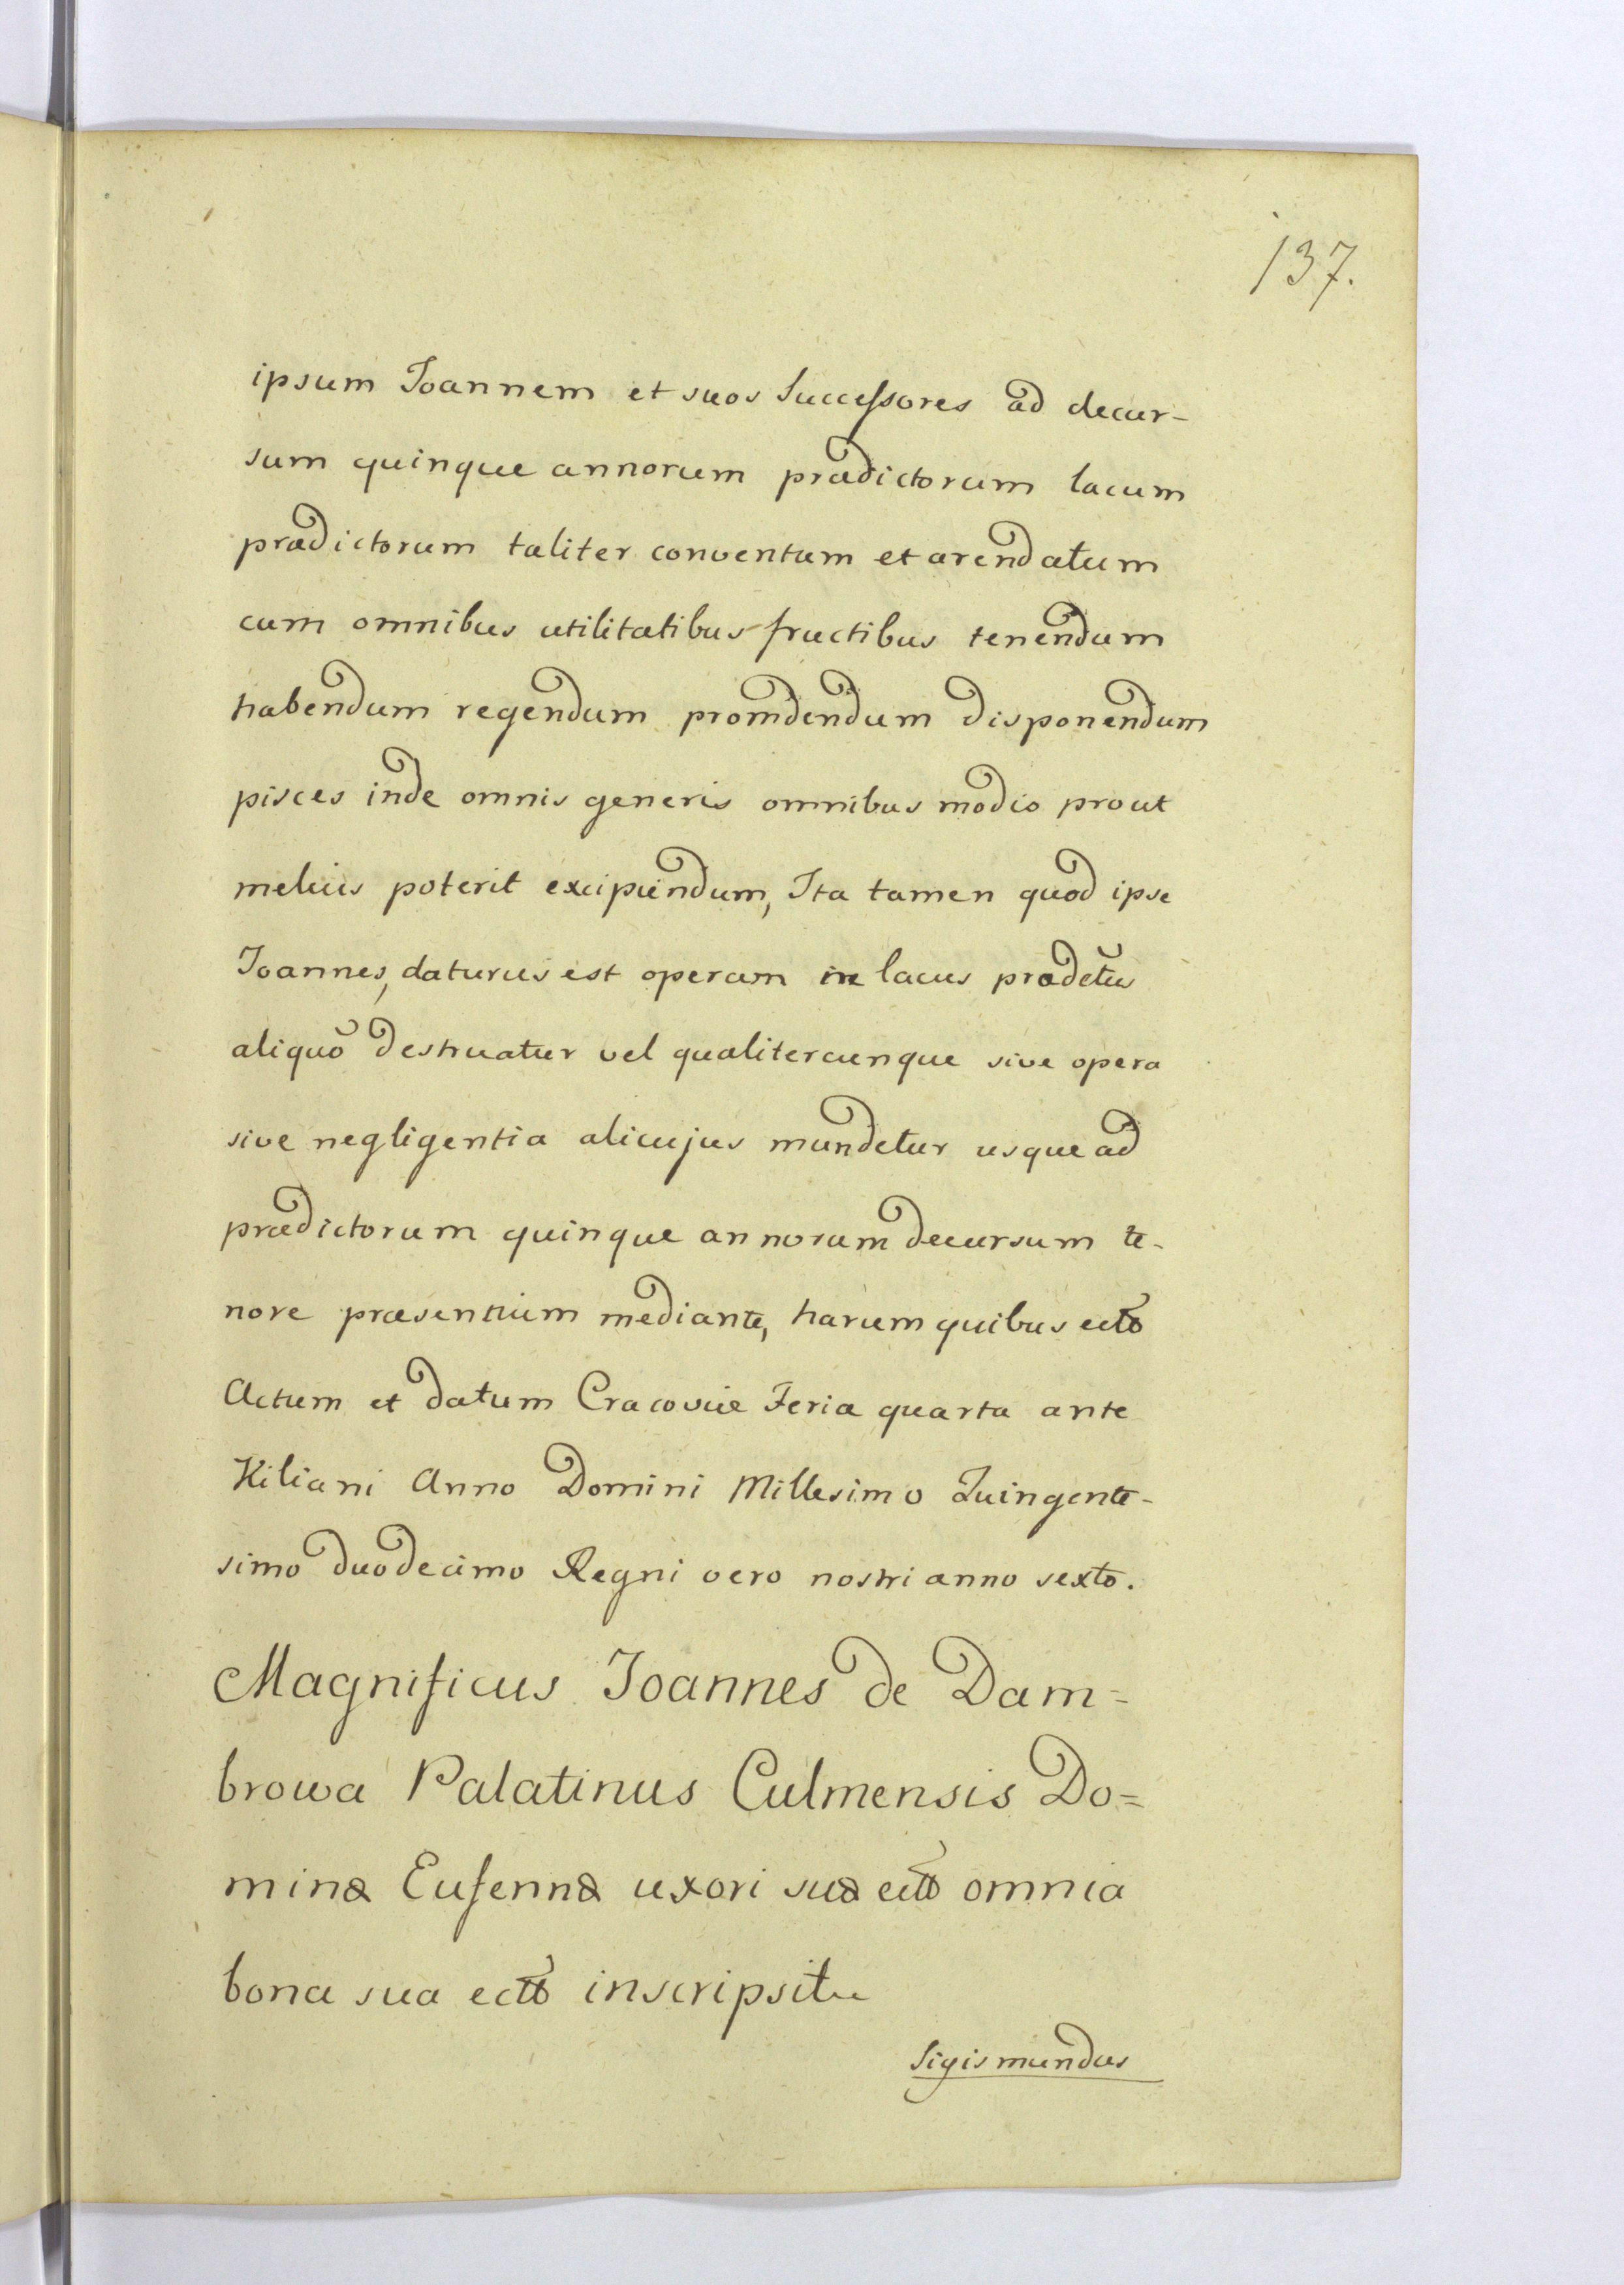 137.
ipsum Joannem et suos Successores ad decur-
sum quinque annorum prædictorum lacum
prædictorum taliter conventum et arendatum
cum omnibus utilitatibus fructibus tenendum
habendum regendum promdendum disponendum
pisces inde omnis generis omnibus modio prout
melius poterit excipiendum, Ita tamen quod ipse
Joannes, daturus est operam ne lacus prædctus
aliquō destruatur vel qualitercunque sive opera
sive negligentia alicujus mundetur usque ad
prædictorum quinque annorum decursum te-
nore præsentium mediante, harum quibus ectō
Actum et datum Cracoviæ Feria quarta ante
Kiliani Anno Domini Millesimo Quingente-
simo duodecimo Regni vero nostri anno sexto.
Magnificus Joannes de Dam-
browa Palatinus Culmensis Do=
minæ Eufennæ uxori suæ ectō omnia
bona sua ectō inscripsit
Sigismundus